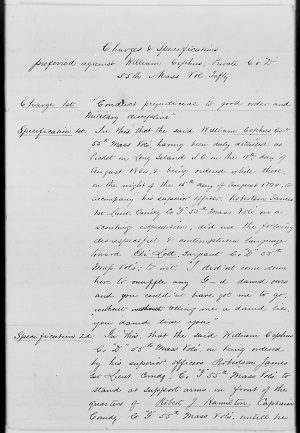 Charges & Specifications
preferred against William Cephus, Private Co "D"
55th Mass Vol Infty
Charge 1st: "Conduct prejudicial to good order and
Military discipline"
Specification 1st: In this that the said William Cephus Co "D"
55th Mass Vols, having been duly detailed as
Picket on Long Island S.C. on the 15th day of
August 1864, & being ordered while there,
on the night of the 15th day of August 1864, to
accompany his superior officer, Robertson James
1st Lieut Comdg Co "F" 55th Mass Vols on a
scouting expedition, did use the following
disrespectful & contemptuous language
toward Eli Lett, Sergeant Co "D" 55th
Mass Vols: to wit, "I didn't come down
here to muffle any G—d damd oars
and you could'nt have got me to go,
without telling me a damd lie,
you damd liar you"
Specification 2d: In this, that the said William Cephus
Co "D" 55th Mass Vols, on being ordered
by his superior officer Robertson James
1st Lieut. Comdg Co "F" 55th Mass Vols, to
stand at support arms in front of the
quarters of Robert J. Hamilton, Captain
Comdg Co "F" 55th Mass Vols, until he